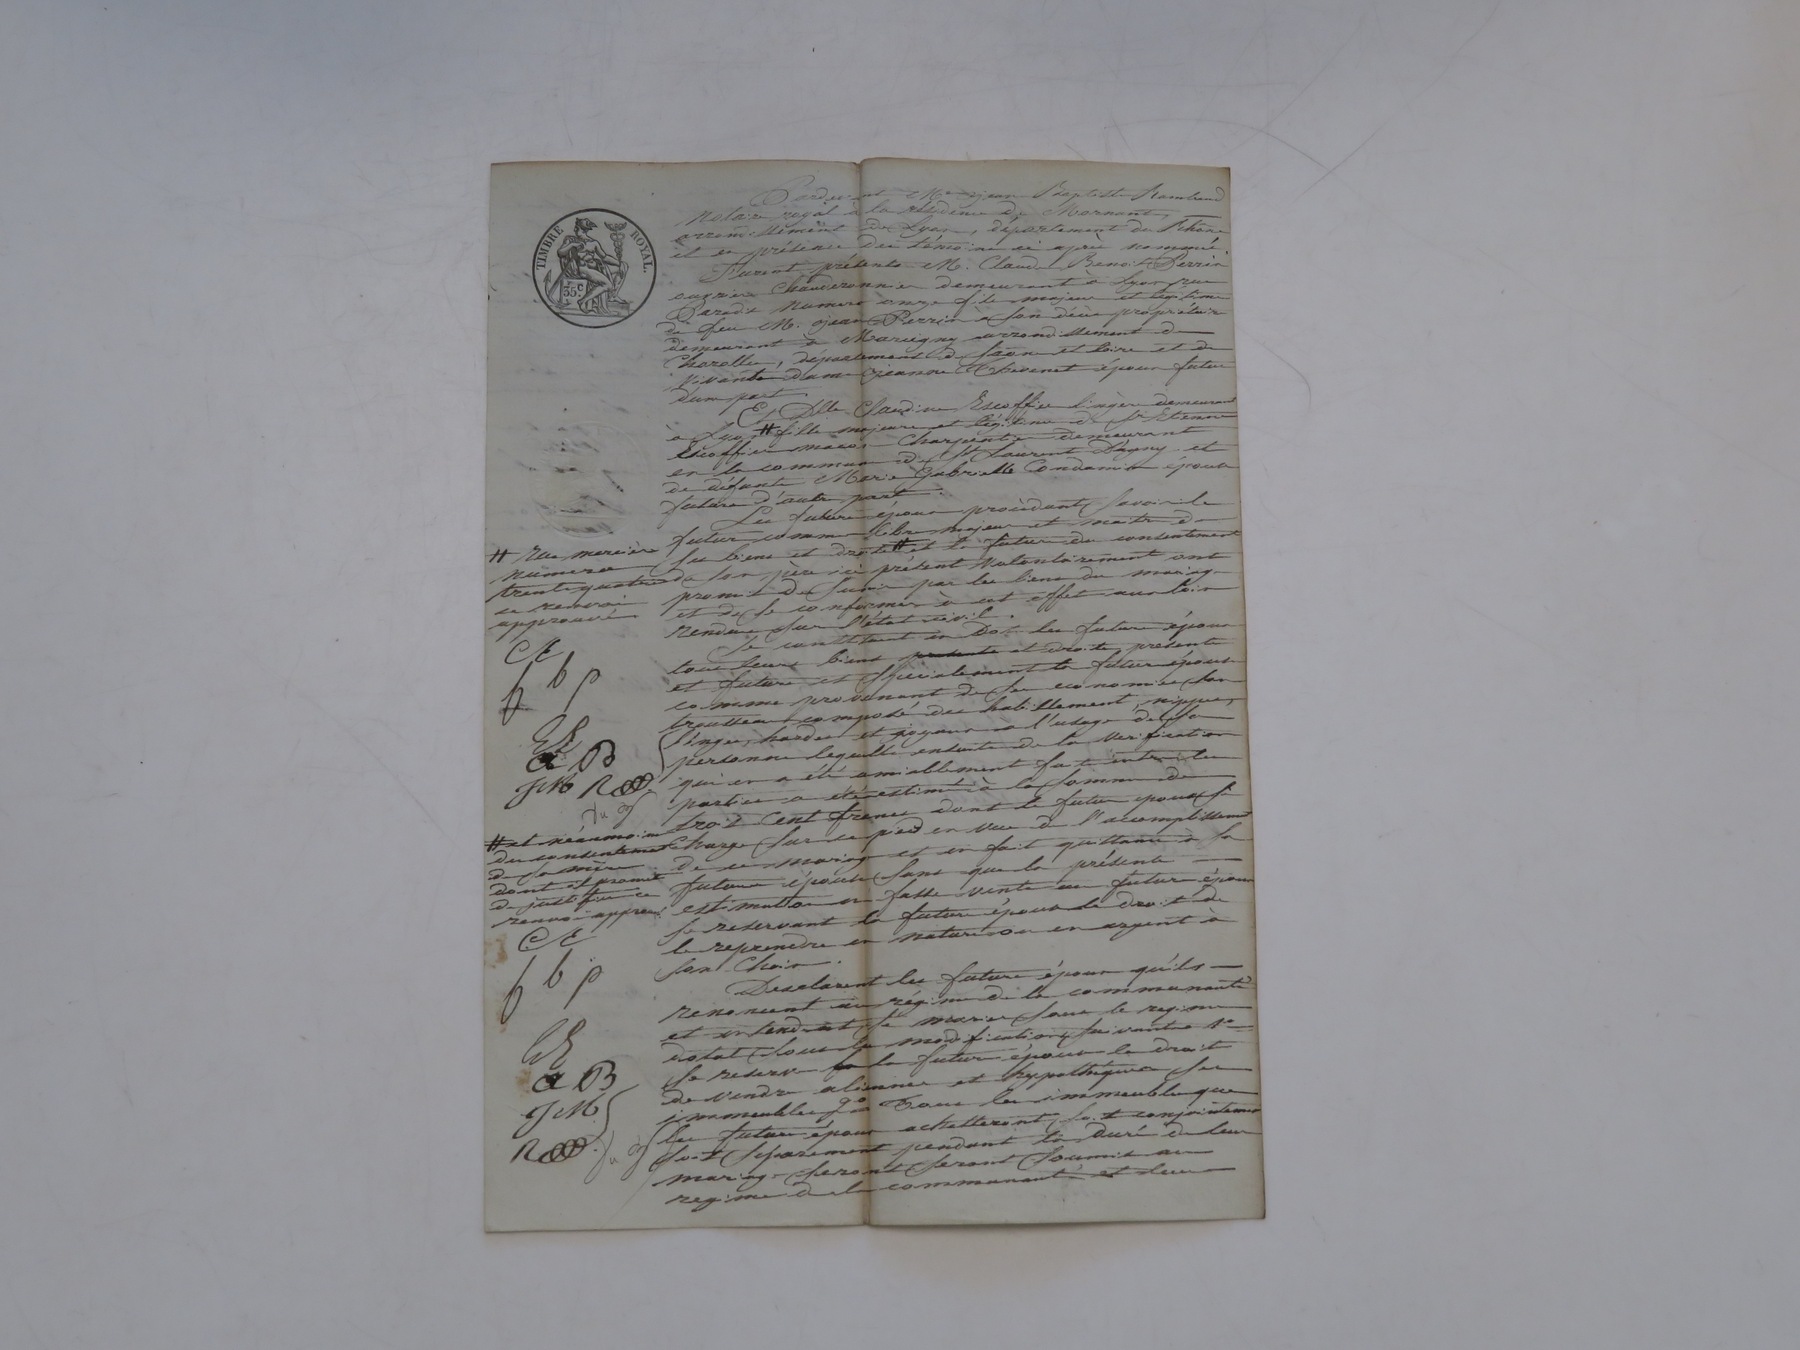 TIMBRE ROYAL.
35c
Pardevant Me jean Baptiste Rambaud
Notaire royal à la résidence de Mornant,
arrondissement de Lyon, département du Rhône
et en présence des témoins ci après nommés.
Furent présents M. Claude Benoit Perrin
ouvrier Chauderonnier demeurant à Lyon rue
Paradis Numero onze fils majeur et légitime
de feu M. jean Perrin à son décès propriétaire
demeurant à Marcigny arrondissement de
Charolles, département de Saône et Loire et de
vivante dame jeanne époux futur
d'une part.
Et Dlle Claudine Escoffier lingère demeurant
à Lyon # fille majeure et légitime de Sr Etienne
Escoffier maître Charpentier demeurant
en la commune de St Laurent D'agny et
de défunte Marie Gabrielle Condamin épouse
future d'autre part.
Les futurs époux procédant savoir le
futur comme libre majeur et maitre de
ses biens et droits # et la future du consentement
de son père ici présent volontairement ont
promis de s'unir par les liens du mariage
et de se conformer à cet effet aux lois
rendues sur l'état civil.
Se constituent en Dot les futurs époux
tous leurs biens presents et droits présents
et futurs et spécialement la future épouse
comme provenant de ses économies son
trousseau composé des habillements, nippes,
linges, hardes et joyaux à l'usage de sa
personne lequel ensuite de la vérification
qui en a été amiablement faite entre les
parties a été estimé à la somme de
trois Cent francs dont le futur époux se
charge sur ce pied en vue de l'accomplissement
de ce mariage et en fait quittance à sa
future épouse sans que la présente
estimation en fasse vente au futur époux
se reservant la future épouse le droit de
le reprendre en nature ou en argent à
son Choix.
Desclarent les futurs époux qu'ils
renoncent au régime de la communauté
et entendent se marier sous le régime
dotal sous les modifications suivantes 1o
se reserve la future épouse le droit
de vendre aliener et hypothéquer ses
immeubles 2o Tous les immeubles que
les futurs époux achetteront, soit conjointement
soit séparement pendant la durée de leur
mariage seront seront soumis au
regime de la communauté et leurs
# rue mercière
numero
trente quatre
ce renvoi
approuvé
CE
f b p
EE
a B
JM R
# et néanmoins
du consentement
de sa mère
dont il promet
de justifier ce
renvoi approuvé
CE
f b p
EE
a B
JM
R